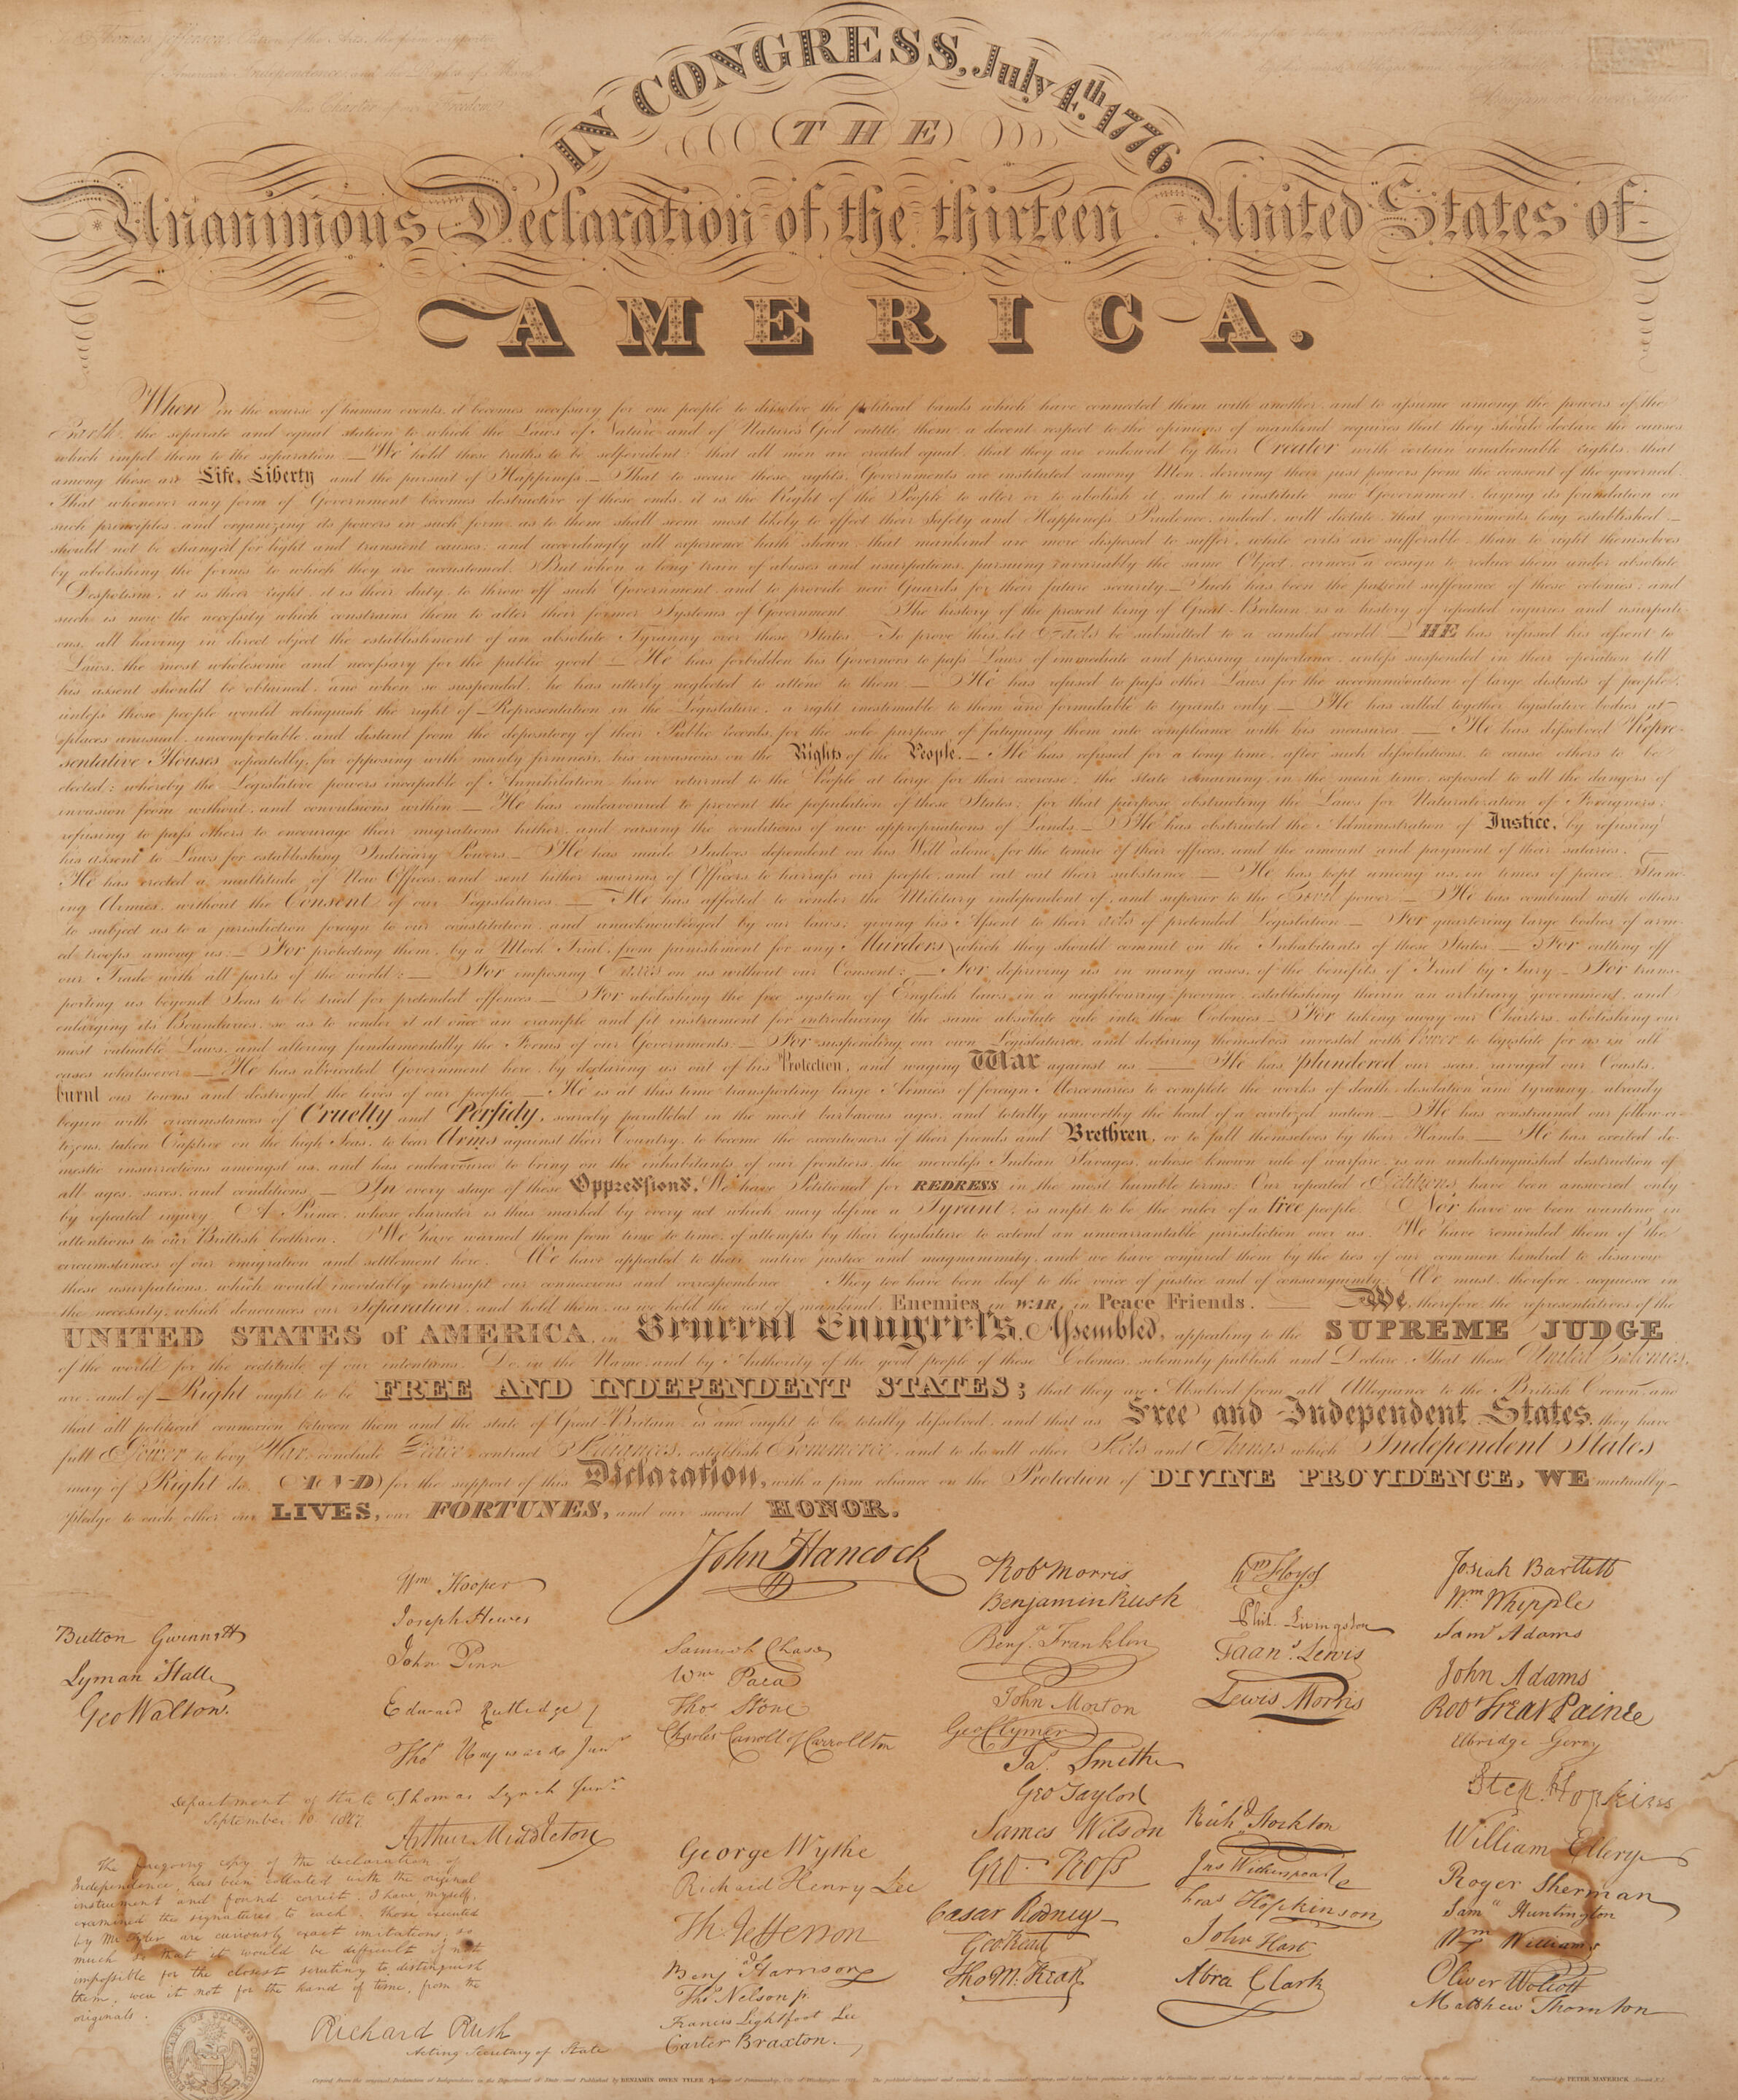 IN CONGRESS, July 4th. 1776
THE
Unanimous Declaration of the thirteen United States of
AMERICA.
When in the course of human events, it becomes necessary for one people to dissolve the political bands which have connected them with another, and to assume among the powers of the
Earth, the separate and equal station to which the Laws of Nature and of Nature's God entitle them, a decent respect to the opinions of mankind requires that they should declare the causes
which impel them to the separation. — We hold these truths to be selfevident; that all men are created equal, that they are endowed by their Creator with certain unalienable rights; that
among these are Life, Liberty and the pursuit of Happiness. — That to secure these rights, Governments are instituted among Men, deriving their just powers from the consent of the governed.
That whenever any form of Government becomes destructive of these ends, it is the Right of the People to alter or to abolish it, and to institute new Government, laying its foundation on
such principles, and organizing its powers in such form, as to them shall seem most likely to effect their Safety and Happiness. Prudence, indeed, will dictate that governments long established —
should not be changed for light and transient causes; and accordingly all experience hath shewn, that mankind are more disposed to suffer, while evils are sufferable, than to right themselves
by abolishing the forms to which they are accustomed. But when a long train of abuses and usurpations, pursuing invariably the same Object, evinces a design to reduce them under absolute
Despotism, it is their right, it is their duty, to throw off such Government, and to provide new Guards for their future security. — Such has been the patient sufferance of these colonies; and
such is now the necessity which constrains them to alter their former Systems of Government. The history of the present king of Great-Britain, is a history of repeated injuries and usurpati-
ons, all having in direct object the establishment of an absolute Tyranny over these States. To prove this, let Facts be submitted to a candid world. — HE has refused his assent to
Laws, the most wholesome and necessary for the public good. — He has forbidden his Governors to pass Laws of immediate and pressing importance, unless suspended in their operation till
his assent should be obtained, and when so suspended, he has utterly neglected to attend to them. — He has refused to pass other Laws for the accommodation of large districts of people,
unless those people would relinquish the right of Representation in the Legislature, a right inestimable to them and formidable to tyrants only. — He has called together legislative bodies at
places unusual, uncomfortable, and distant from the depository of their Public records, for the sole purpose of fatiguing them into compliance with his measures. — He has dissolved Repre-
sentative Houses repeatedly, for opposing with manly firmness, his invasions on the Rights of the People. — He has refused for a long time, after such dissolutions, to cause others to be
elected; whereby the Legislative powers incapable of Annihilation, have returned to the People at large, for their exercise; the state remaining, in the mean time, exposed to all the dangers of
invasion from without, and convulsions within. — He has endeavoured to prevent the population of these States; for that purpose obstructing the Laws for Naturalization of Foreigners;
refusing to pass others to encourage their migrations hither, and raising the conditions of new appropriations of Lands. — He has obstructed the Administration of Justice, by refusing
his assent to Laws for establishing Judiciary Powers. — He has made Judges dependent on his Will alone, for the tenure of their offices, and the amount and payment of their salaries. —
He has erected a multitude of New Offices, and sent hither swarms of Officers to harrass our people, and eat out their substance. — He has kept among us, in times of peace, Stand-
ing Armies, without the Consent of our Legislatures. — He has affected to render the Military independent of, and superior to the Civil power. — He has combined with others
to subject us to a jurisdiction foreign to our constitution, and unacknowledged by our laws; giving his Assent to their acts of pretended Legislation. — For quartering large bodies of arm-
ed troops among us; — For protecting them, by a Mock Trial, from punishment for any Murders which they should commit on the Inhabitants of these States; — For cutting off
our Trade with all parts of the world; — For imposing Taxes on us without our Consent; — For depriving us, in many cases, of the benefits of Trial by Jury. — For trans-
porting us beyond Seas to be tried for pretended offences. — For abolishing the free system of English laws in a neighbouring province, establishing therein an arbitrary government, and
enlarging its Boundaries, so as to render it at once an example and fit instrument for introducing the same absolute rule into these Colonies. — For taking away our Charters, abolishing our
most valuable Laws, and altering fundamentally the Forms of our Governments; — For suspending our own Legislatures, and declaring themselves invested with Power to legislate for us in all
cases whatsoever. — He has abdicated Government here, by declaring us out of his Protection, and waging War against us. — He has plundered our seas, ravaged our Coasts,
burnt our towns and destroyed the lives of our people. — He is at this time transporting large Armies of foreign Mercenaries to complete the works of death, desolation and tyranny, already
begun with circumstances of Cruelty and Perfidy, scarcely paralleled in the most barbarous ages, and totally unworthy the head of a civilized nation. — He has constrained our fellow-ci-
tizens, taken Captive on the high Seas, to bear Arms against their Country, to become the executioners of their friends and Brethren, or to fall themselves by their Hands. — He has excited do-
mestic insurrections amongst us, and has endeavoured to bring on the inhabitants of our frontiers, the merciless Indian Savages, whose known rule of warfare, is an undistinguished destruction of
all ages, sexes, and conditions. — In every stage of these Oppressions, We have Petitioned for REDRESS in the most humble terms: Our repeated Petitions have been answered only
by repeated injury. A Prince, whose character is thus marked by every act which may define a Tyrant, is unfit to be the ruler of a free people. Nor have we been wanting in
attentions to our Brittish brethren. We have warned them from time to time, of attempts by their legislature to extend an unwarrantable jurisdiction over us. We have reminded them of the
circumstances of our emigration and settlement here. We have appealed to their native justice and magnanimity, and we have conjured them by the ties of our common kindred to disavow
these usurpations, which would inevitably interrupt our connexions and correspondence. They too have been deaf to the voice of justice and of consanguinity. We must, therefore, acquiesce in
the necessity, which denounces our Separation, and hold them, as we hold the rest of mankind, Enemies in WAR, in Peace Friends. — We, therefore the representatives of the
UNITED STATES of AMERICA, in General Congress, Assembled, appealing to the SUPREME JUDGE
of the world for the rectitude of our intentions, Do, in the Name, and by Authority of the good people of these Colonies, solemnly publish and Declare, That these United Colonies,
are, and of Right ought to be FREE AND INDEPENDENT STATES; that they are Absolved from all Allegiance to the British Crown, and
that all political connexion between them and the state of Great-Britain, is and ought to be totally dissolved; and that as Free and Independent States, they have
full Power to levy War, conclude Peace, contract Alliances, establish Commerce, and to do all other Acts and Things which Independent States
may of Right do. AND for the support of this Declaration, with a firm reliance on the Protection of DIVINE PROVIDENCE, WE mutually —
pledge to each other our LIVES, our FORTUNES, and our sacred HONOR.
John Hancock
Button Gwinnett
Lyman Hall
Geo Walton.
Wm Hooper
Joseph Hewes
John Penn
Edward Rutledge
Thos Heyward Junr
Thomas Lynch Junr
Arthur Middleton
Samuel Chase
Wm Paca
Thos Stone
Charles Carroll of Carrollton
George Wythe
Richard Henry Lee
Th. Jefferson
Benj Harrison
Thos Nelson jr.
Francis Lightfoot Lee
Carter Braxton.
Rob Morris
Benjamin Rush
Benj. Franklin
John Morton
Geo Clymer
Jas. Smith
Geo Taylor
James Wilson
Geo. Ross
Caesar Rodney
Geo Read
Tho M.Kean
Wm Floyd
Phil. Livingston
Frans. Lewis
Lewis Morris
Richd. Stockton
Jno Witherspoon
Fras. Hopkinson
John Hart
Abra Clark
Josiah Bartlett
Wm Whipple
Saml Adams
John Adams
Robt Treat Paine
Elbridge Gerry
Step. Hopkins
William Ellery
Roger Sherman
Saml Huntington
Wm Williams
Oliver Wolcott
Matthew Thornton
Department of State
September 10. 1817.
The foregoing copy of the declaration of
Independence, has been collated with the original
instrument and found correct. I have myself,
examined the signatures to each. Those executed
by Mr Tyler, are curiously exact imitations; so
much so that it would be difficult if not
impossible for the closest scrutiny to distinguish
them, were it not for the hand of time, from the
originals.
Richard Rush
Acting Secretary of State
Copied from the original Declaration of Independence in the Department of State and Published by BENJAMIN OWEN TYLER
Engraved by PETER MAVERICK